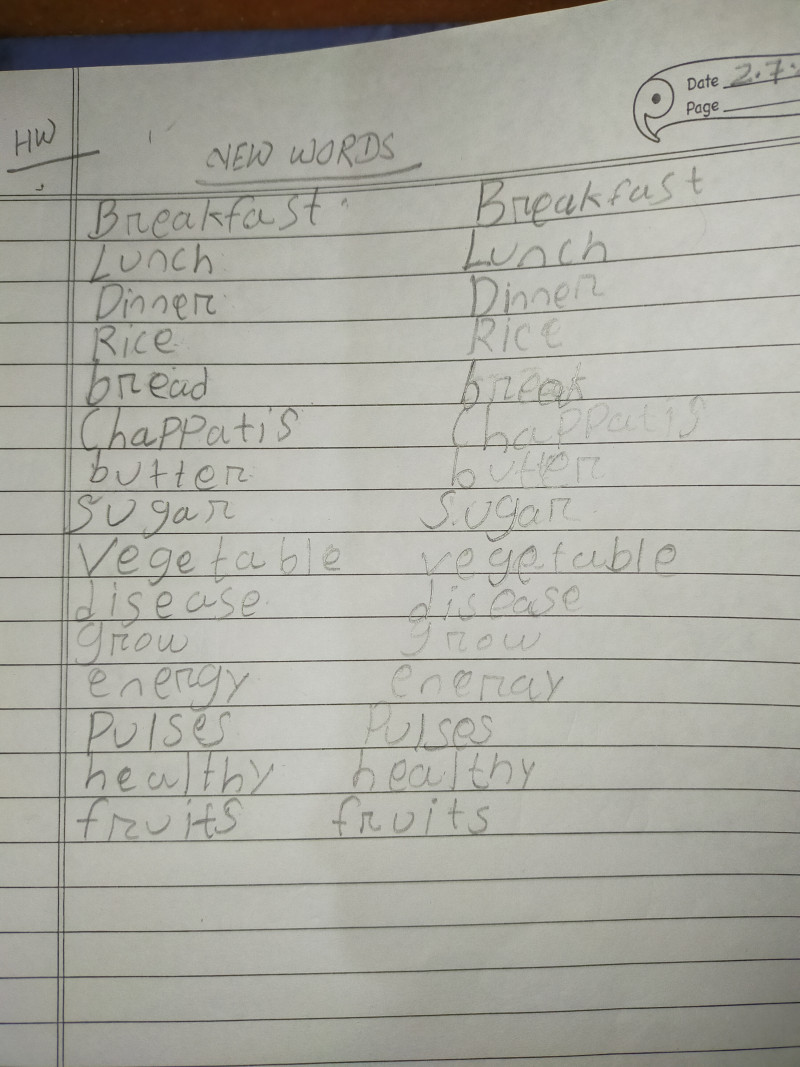 Date 2.7.
Page
HW
NEW WORDS
Breakfast Breakfast
Lunch Lunch
Dinner Dinner
Rice Rice
bread break
Chappatis Chappatis
butter butter
Sugar Sugar
Vegetable vegetable
disease disease
grow grow
energy eneray
Pulses Pulses
healthy healthy
fruits fruits